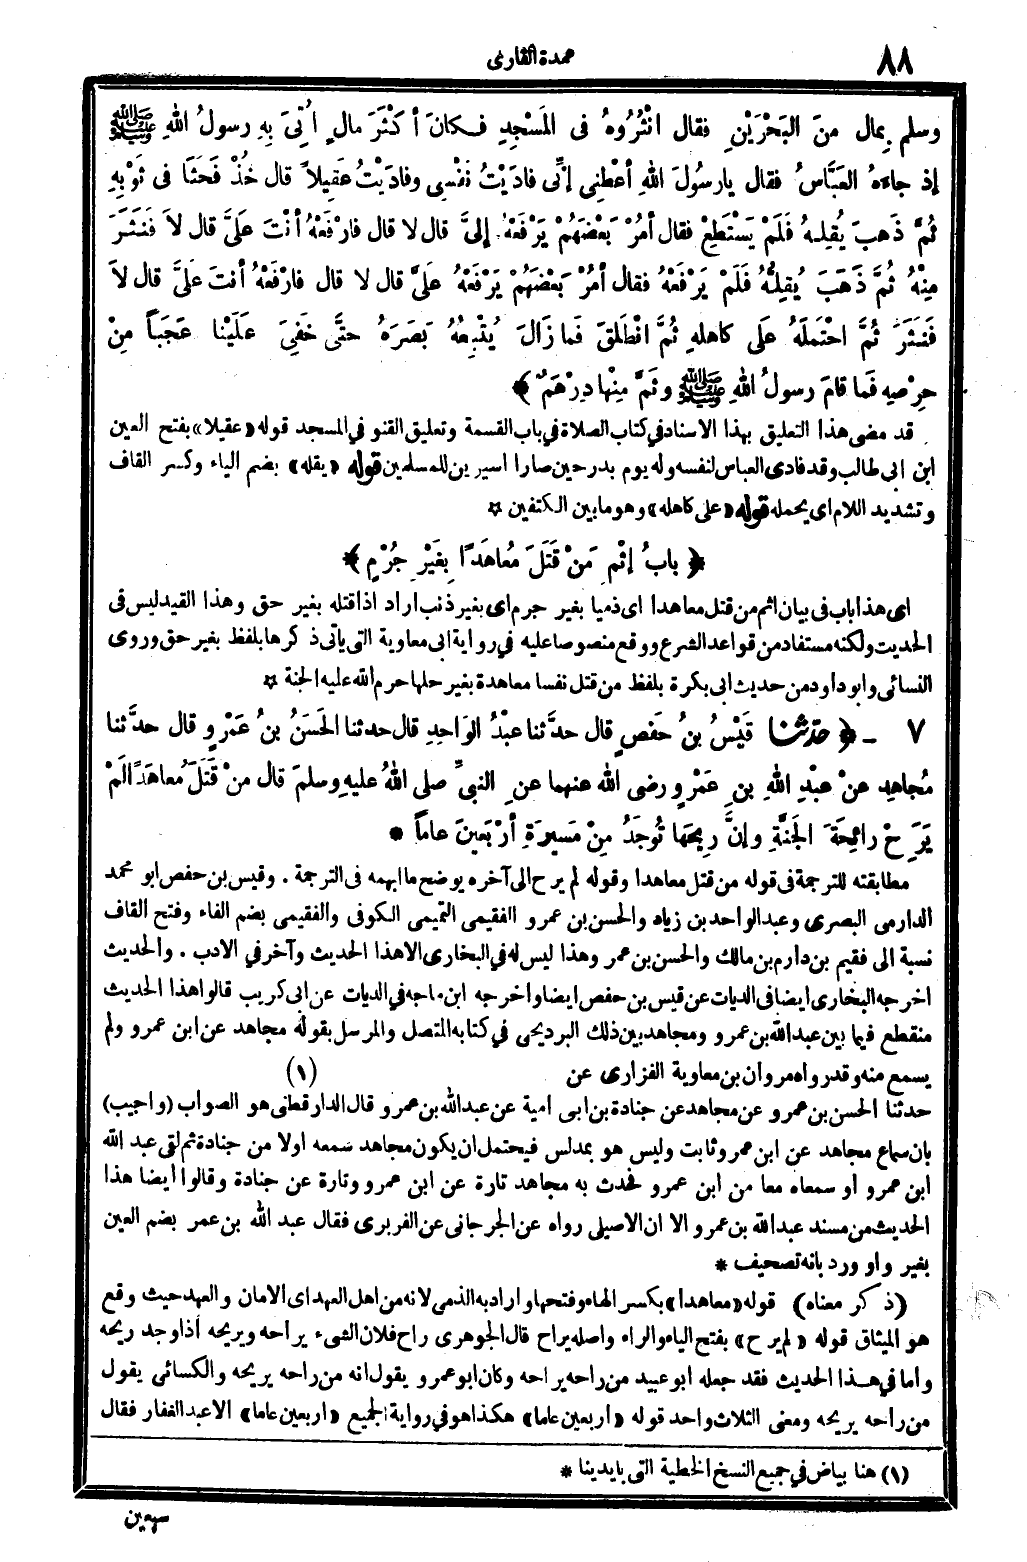 ٨٨
عمدة القارى
وسلم بِمال منَ البَحْرَيْنِ فقال انْثُرُوهُ فى المَسْجِدِ فـكانَ أكْثَرَ مالٍ أُتِىَ بِهِ رسولُ اللهِ ﷺ
إذ جاءَهُ العَبَّاسُ فقال يارسُولَ اللهِ أعْطِنِى إنِّى فادَيْتُ نَفْسِى وفادَيْتُ عَقِيلاً قال خُذْ فَحَثَا فى ثَوْبِهِ
ثُمَّ ذَهبَ يُقِلـهُ فَلَمْ يَسْتَطِعْ فقال أمُرْ بَعْضَهُمْ يَرْفَعْهُ إلىَّ قال لا قال فارْفَعْهُ أنْتَ عَلَىَّ قال لاَ فَنَثَرَ
مِنْهُ ثُمَّ ذَهَبَ يُقِلُّهُ فَلَمْ يَرْفَعْهُ فقال أمُرْ بَعْضَهُمْ يَرْفَعْهُ عَلَىَّ قال لا قال فارْفَعْهُ أنتَ عَلَىَّ قال لاَ
فَنَثَرَ ثُمَّ احْتَمَلَهُ عَلَى كاهلِهِ ثُمَّ انْطَلَقَ فَما زَالَ يُتْبِعُهُ بَصَرَهُ حتَّى خَفِىَ عَلَيْنا عَجَباً مِنْ
حِرْصِهِ فَما قامَ رسولُ اللهِ ﷺ وثَمَّ مِنْها دِرْهَمٌ ﴾
قد مضى هذا التعليق بهذا الاسناد فى كتاب الصلاة فى باب القسمة وتعليق القنو فى المسجد قوله «عقيلا» بفتح العين
ابن ابى طالب وقد فادى العباس لنفسه وله يوم بدر حين صارا اسيرين للمسلمين قوله «يقله» بضم الياء وكسر القاف
وتشديد اللام اى يحمله قوله «على كاهله» وهو مابين الكتفين ☆
﴿ بابُ إثْمِ مَنْ قَتَلَ مُعاهَدًا بِغَيْرِ جُرْمٍ ﴾
اى هذا باب فى بيان اثم من قتل معاهدا اى ذميا بغير جرم اى بغير ذنب اراد اذا قتله بغير حق وهذا القيد ليس فى
الحديث ولكنه مستفاد من قواعد الشرع ووقع منصوصا عليه فى رواية ابى معاوية التى يأتى ذكرها بلفظ بغير حق وروى
النسائى وابو داود من حديث ابى بكرة بلفظ من قتل نفسا معاهدة بغير حلها حرم الله عليه الجنة ☆
٧ - ﴿ حَدَّثَنَا قَيْسُ بنُ حَفصٍ قال حدَّثنا عبْدُ الوَاحِدِ قال حدثنا الحَسَنُ بنُ عَمْرٍو قال حدَّثنا
مُجاهِد عنْ عبْدِ اللهِ بنِ عَمْرٍو رضى الله عنهما عنِ النبىِّ صلى اللهُ عليهِ وسلمَ قال منْ قَتَلَ مُعاهَدًا لَمْ
يَرَحْ رائِحَةَ الجَنَّةِ وإنَّ رِيحَهَا تُوجَدُ مِنْ مَسِيرَةِ أرْبَعينَ عاماً *
مطابقته للترجمة فى قوله من قتل معاهدا وقوله لم يرح الى آخره يوضح ما ابهمه فى الترجمة . وقيس بن حفص ابو محمد
الدارمى البصرى وعبد الواحد بن زياد والحسن بن عمرو الفقيمى التميمى الكوفى والفقيمى بضم الفاء وفتح القاف
نسبة الى فقيم بن دارم بن مالك والحسن بن عمر وهذا ليس له فى البخارى الا هذا الحديث وآخر فى الادب . والحديث
اخرجه البخارى ايضا فى الديات عن قيس بن حفص ايضا واخرجه ابن ماجه فى الديات عن ابى كريب قالوا هذا الحديث
منقطع فيما بين عبد الله بن عمرو ومجاهد بين ذلك البرديجى فى كتابه المتصل والمرسل بقوله مجاهد عن ابن عمرو ولم
يسمع منه وقد رواه مروان بن معاوية الفزارى عن (١)
حدثنا الحسن بن عمرو عن مجاهد عن جنادة بن ابى امية عن عبد الله بن عمرو قال الدارقطنى هو الصواب (واجيب)
بان سماع مجاهد عن ابن عمرو ثابت وليس هو بمدلس فيحتمل ان يكون مجاهد سمعه اولا من جنادة ثم لقى عبد الله
ابن عمرو او سمعاه معا من ابن عمرو فحدث به مجاهد تارة عن ابن عمرو وتارة عن جنادة وقالوا أيضا هذا
الحديث من مسند عبد الله بن عمرو الا ان الاصيلى رواه عن الجرجانى عن الفربرى فقال عبد الله بن عمر بضم العين
بغير واو ورد بانه تصحيف *
(ذكر معناه) قوله «معاهدا» بكسر الهاء وفتحها واراد به الذمى لانه من اهل العهد اى الامان والعهد حيث وقع
هو الميثاق قوله «لم يرح» بفتح الياء والراء واصله يراح قال الجوهرى راح فلان الشىء يراحه ويريحه اذا وجد ريحه
وأما فى هـذا الحديث فقد جعله ابو عبيد من راحه يراحه وكان ابو عمرو يقول انه من راحه يريحه والكسائى يقول
من راحه يريحه ومعنى الثلاث واحد قوله «اربعين عاما» هكذا هو فى رواية الجميع «اربعين عاما» الا عبد الغفار فقال
(١) هنا بياض فى جميع النسخ الخطية التى بايدينا *
سبعين